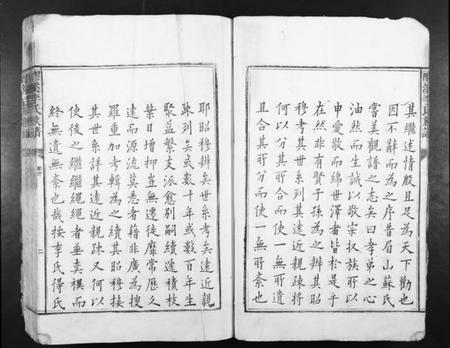 其繼述情殷且足為天下勸也
因不辭而為之序昔眉山蘇氏
嘗美觀譜之志矣曰孝弟之心
油然而生誠以敬宗收族所以
申愛敬而綿世澤者皆於是乎
在然非有賢子孫為之辨其昭
穆考其世系列其遠近親疎將
何以分其所分合而使一無所遺
且合其所分而使一無所紊也
耶昭穆辨矣世系考矣遠近親
疎列矣或數十年或數百年生
聚益繁支派愈別嗣續遞積枝
葉日增抑豈無遠徙靡常歷久
遠而源流莫悉者藉非廣為搜
羅重加考輯為之續其昭穆接
其世系詳其遠近親疎又何以
使後之繼繼繩繩者垂奕禩而
終無遺無紊也哉按李氏得氏
李氏族譜
二